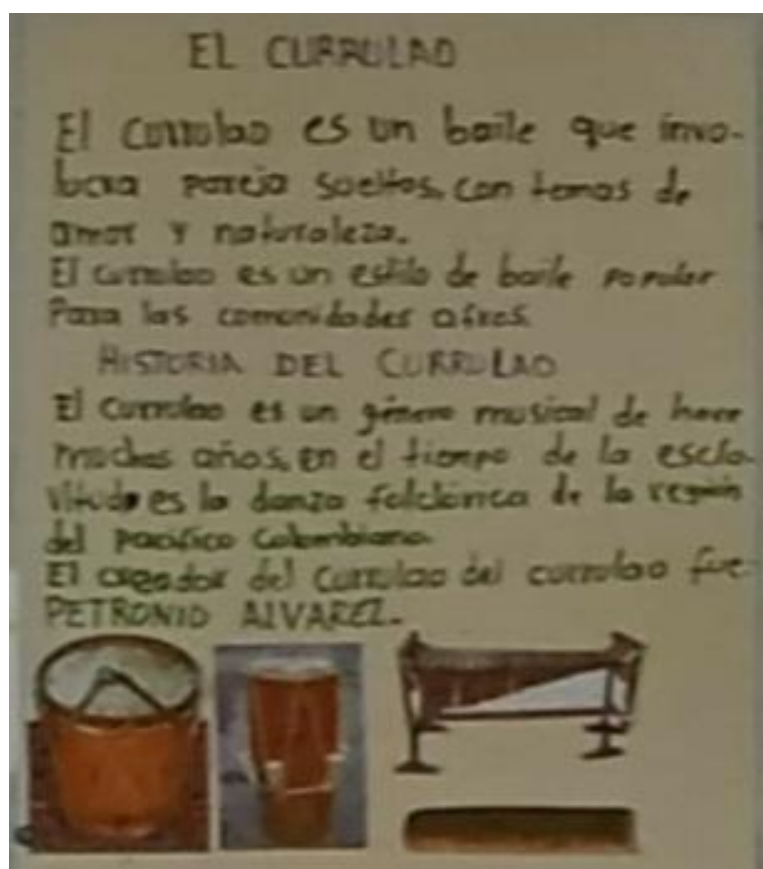 EL CURRULAO
El currulao es un baile que invo-
lucra pareja sueltos, con temas de
amor y naturaleza.
El currulao es un estilo de baile popular
Para las comunidades afros.
HISTORIA DEL CURRULAO
El currulao es un género musical de hace
muchos años, en el tiempo de la escla-
vitud es la danza folclórica de la región
del pacífico Colombiano
El creador del currulao del currulao fue
PETRONIO ALVAREZ.